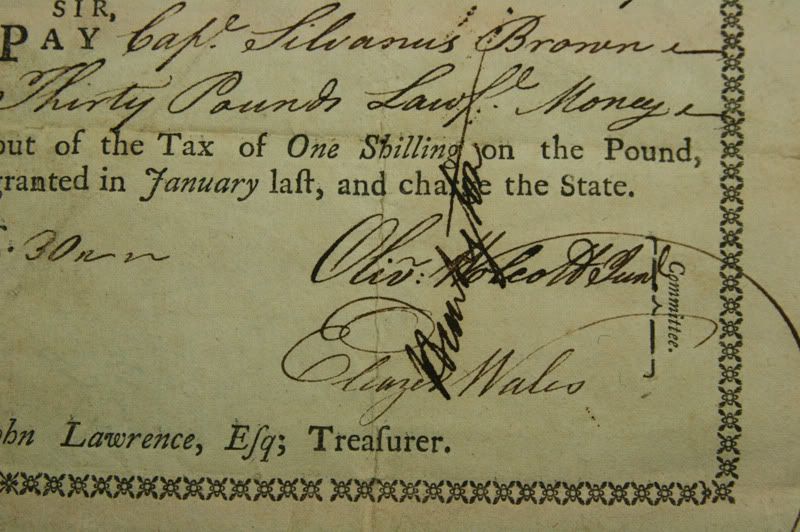 SIR,
PAY Capt. Silvanus Brown
Thirty Pounds Lawf.l Money
out of the Tax of One Shilling on the Pound,
granted in January last, and charge the State.
30
Oliv.r Wolcott Jun
Committee.
Eliazer Wales
John Lawrence, Esq; Treasurer.